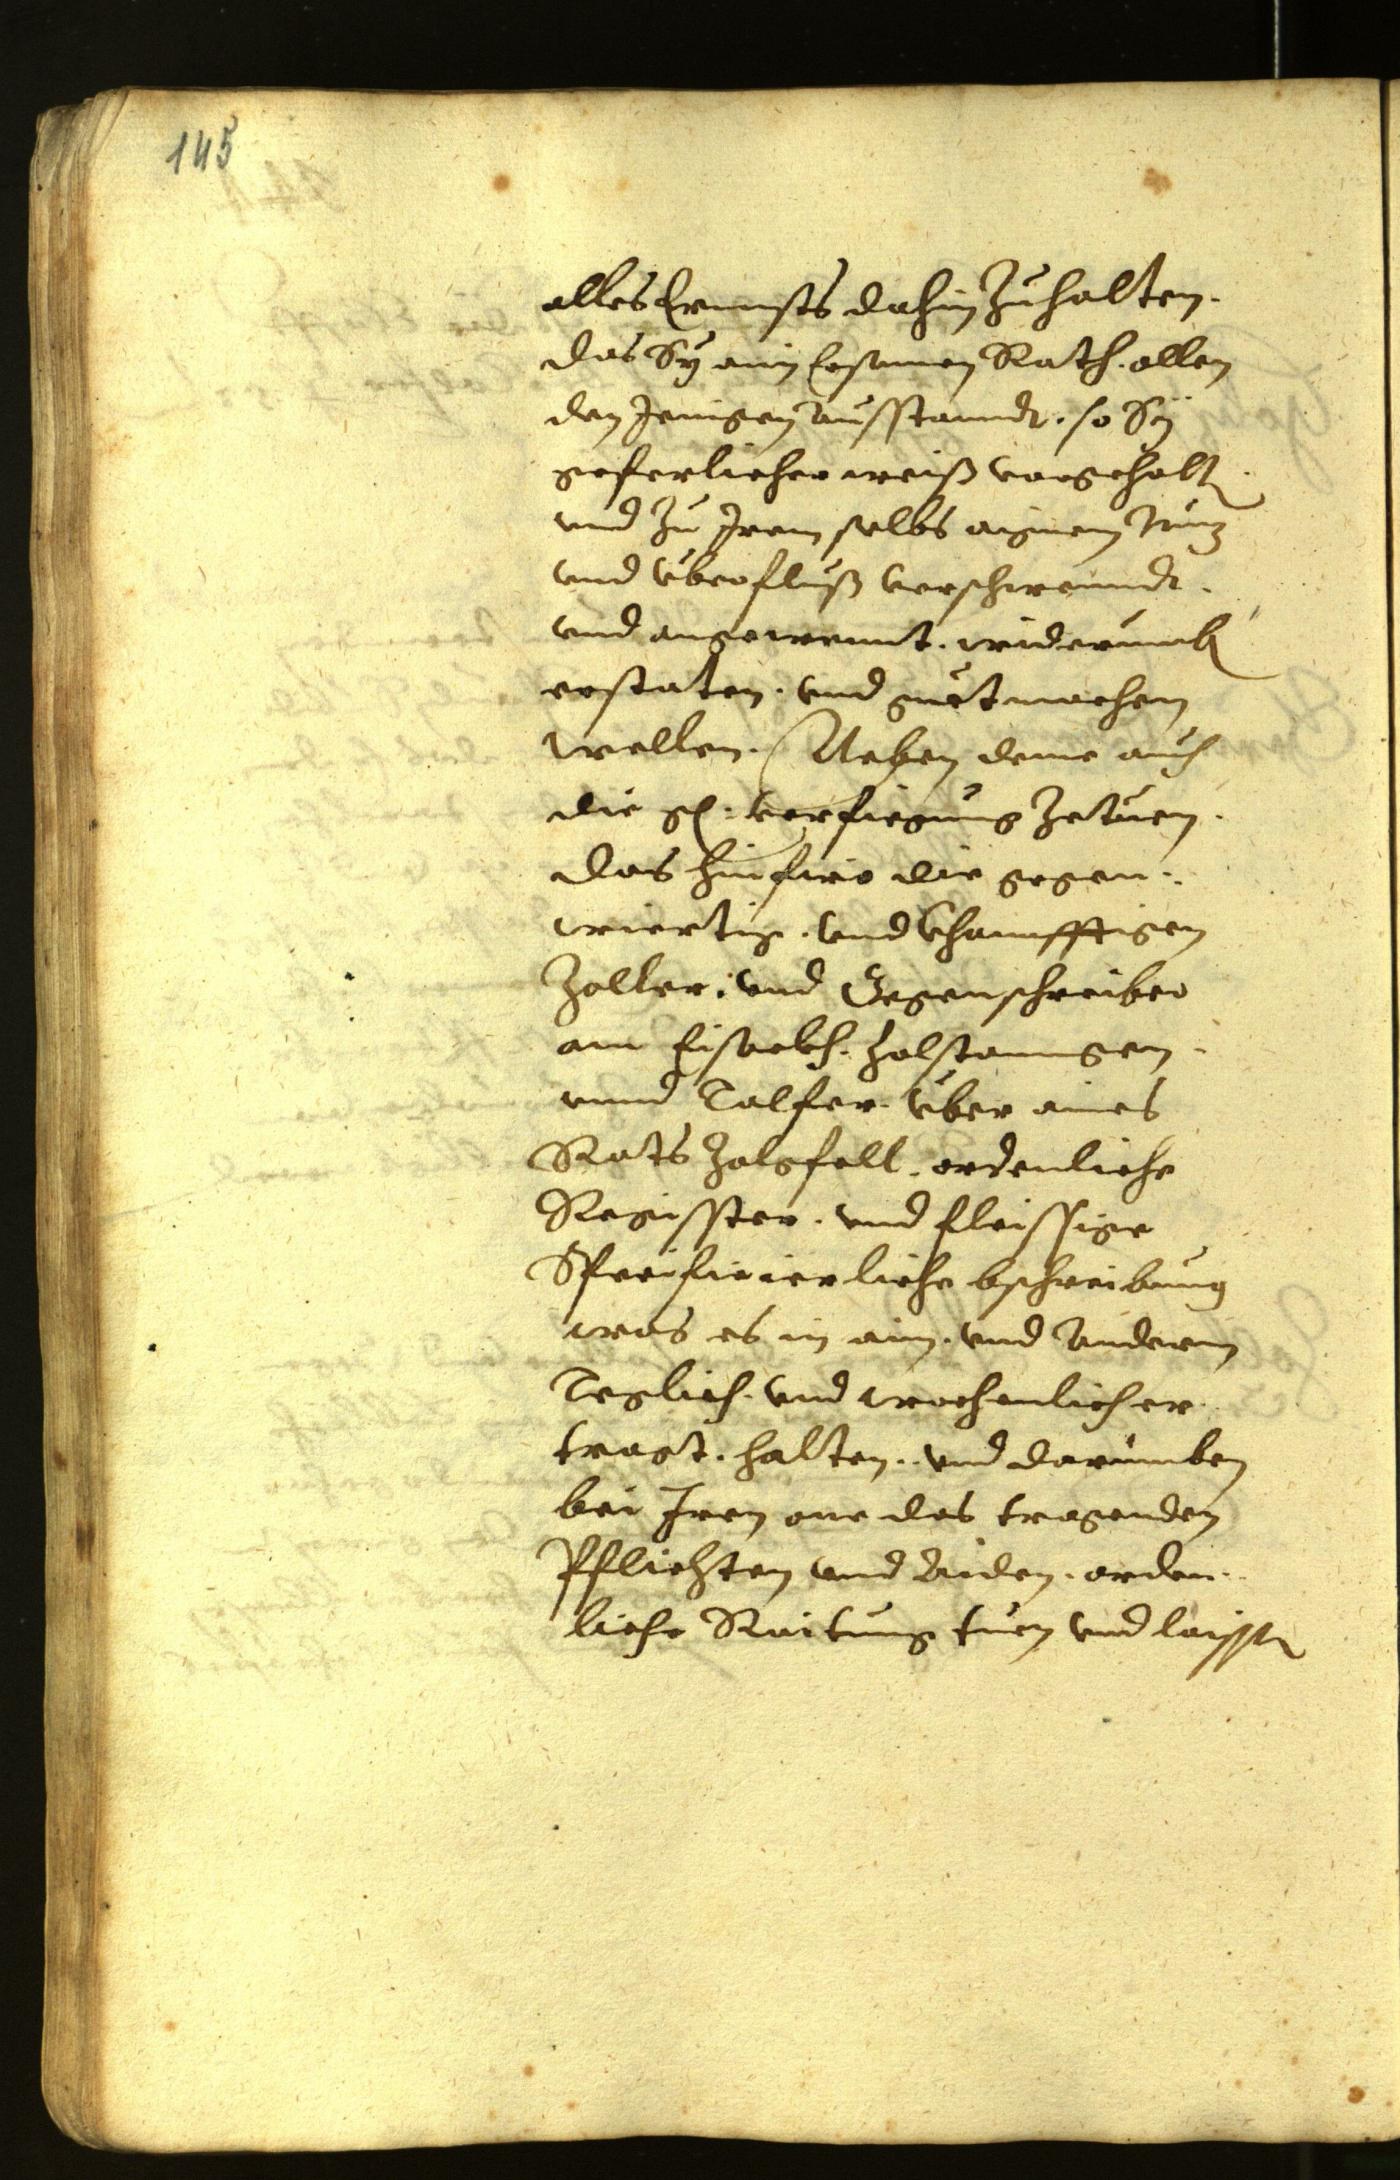 145
alles Ernnsts dahin Zuhalten.
das Sy ain Ersamen Rath. allen
den Jenigen Ausstanndt. so Sy
geferlicher weiß
vnd Zu Jrem selbs aignem Nutz
vnd Überfluß verschwenndt.
vnd angewennt. widerumb
erstaten. vnd guetmachen
wellen. Neben deme auch
die gl: verfiegung Zetuen.
das hinfiro die gegen-
wiertig. vnd khonfftigen
Zoller. vnd Gegenschreiber
am Eisackh. Zolstanngen.
vnnd Talfer. Über aines
Rats Zolgfell. ordenliche
Regisster. vnd fleissige
Specificierliche bschreibung
was es in aim. vnd Anderm
Teglich. vnd wochenlich er-
tragt. halten. vnd darumben
bei Jren one das tragenden
Pflichten vnd Aiden. orden-
liche Raitung tuen vnd laisten